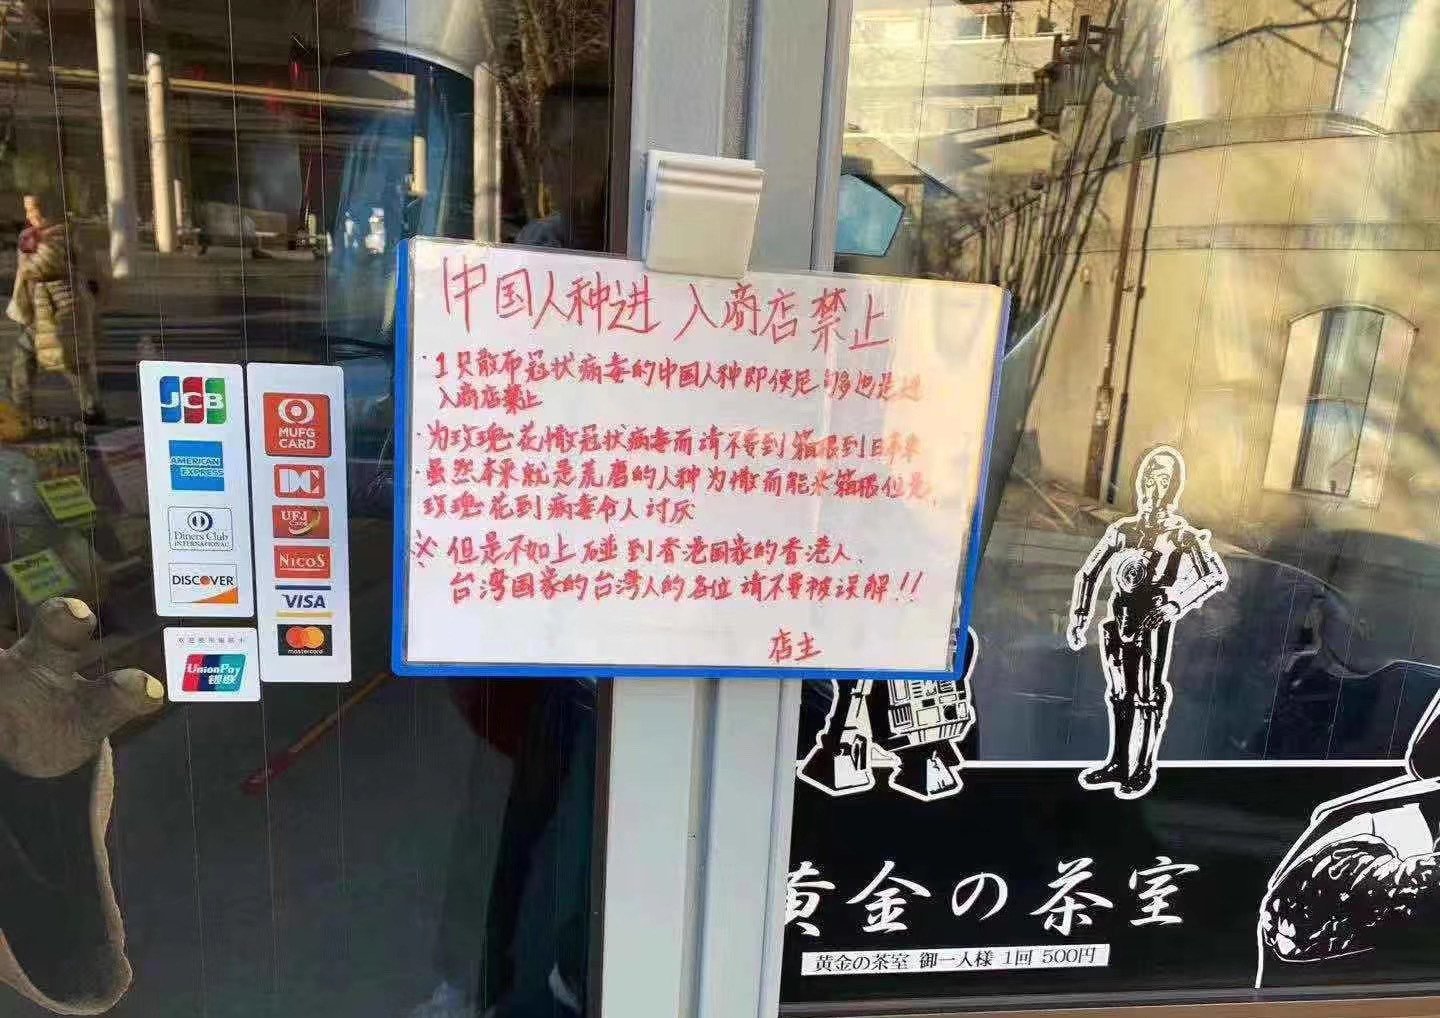 中国人种进入商店禁止
・1只散布冠状病毒的中国人种即使尼 够也是进
入商店禁止
・为玫瑰花撒冠状病毒而请不要到箱根到日本来
・虽然本来就是荒磨的人种为撒而能米箱根但是,
玫瑰花到病毒令人讨厌
※但是不如上碰到香港国家的香港人、
台湾国家的台湾人的各位请不要被误解!!
店主
JCB
AMERICAN EXPRESS
Diners Club
INTERNATIONAL
DISCOVER
UnionPay
银联
MUFG
CARD
DC
UFJ
Card
NICOS
VISA
mastercard
黄金の茶室
黄金の茶室 御一人様 1回 500円